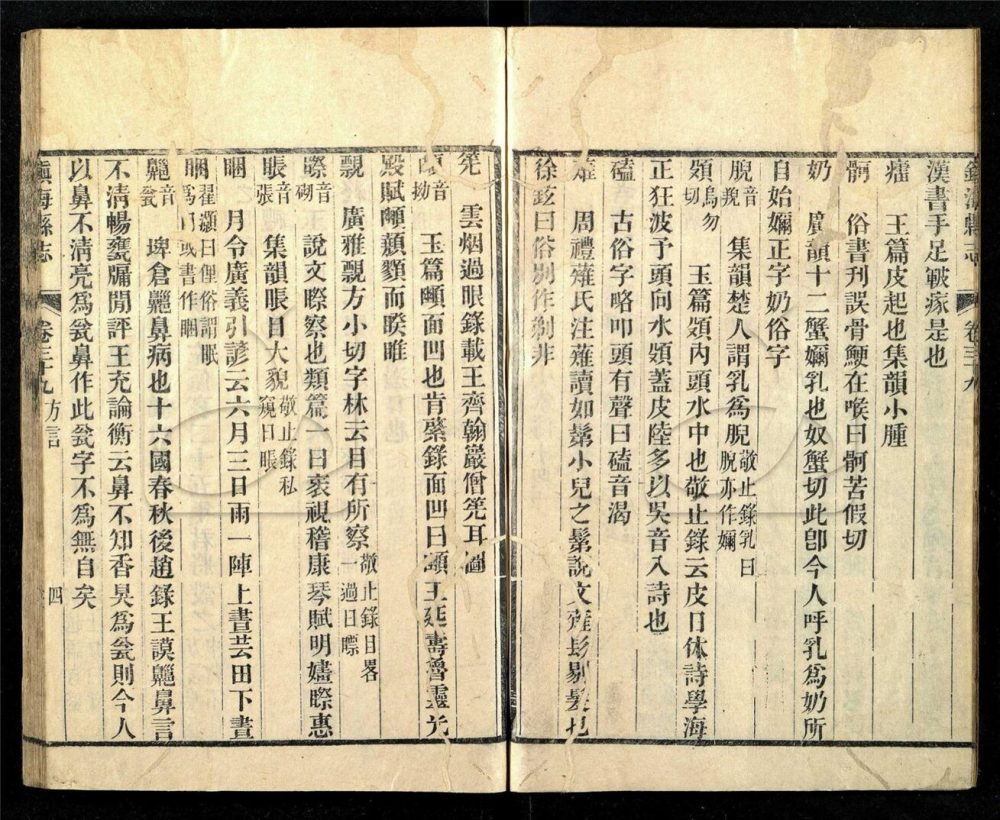 鎮海縣志 卷三十九
漢書手足皸瘃是也
㿈 玉篇皮起也集韻小腫
䯊 俗書刊誤骨鯁在喉曰䯊苦假切
奶 廣韻十二蟹嬭乳也奴蟹切此卽今人呼乳爲奶所
自始嬭正字奶俗字
脫音羪 集韻楚人謂乳爲脫敬止錄乳曰脫亦作嬭
頞烏勿切 玉篇頞內頭水中也敬止錄云皮日休詩學海
正狂波予頭向水頞蓋皮陸多以吳音入詩也
磕 古俗字略叩頭有聲曰磕音渴
薙 周禮薙氏注薙讀如鬀小兒之鬀說文薙髟剔髮也
徐鉉曰俗別作剃非
兠 雲烟過眼錄載王齊翰巖僧兠耳圖
音拗 玉篇䫜面凹也肯綮錄面凹曰 王延壽魯靈光
殿賦 顤顟而睽睢
覭 廣雅覭方小切字林云目有所察敬止錄目畧一過曰瞟
瞭音砌 說文瞭察也類篇一曰衺視稽康琴賦明嫿瞭惠
眼音張 集韻眼目大貌敬止錄私窺曰眼
睏 月令廣義引諺云六月三日雨一陣上晝芸田下晝
睏翟灝曰俚俗謂眠爲睏或書作睏
齆音瓮 埤倉齆鼻病也十六國春秋後趙錄王謨齆鼻言
不淸暢甕牖閒評王充論衡云鼻不知香臭爲瓮則今人
以鼻不淸亮爲瓮鼻作此瓮字不爲無自矣
鎮海縣志 卷三十九 方言 四